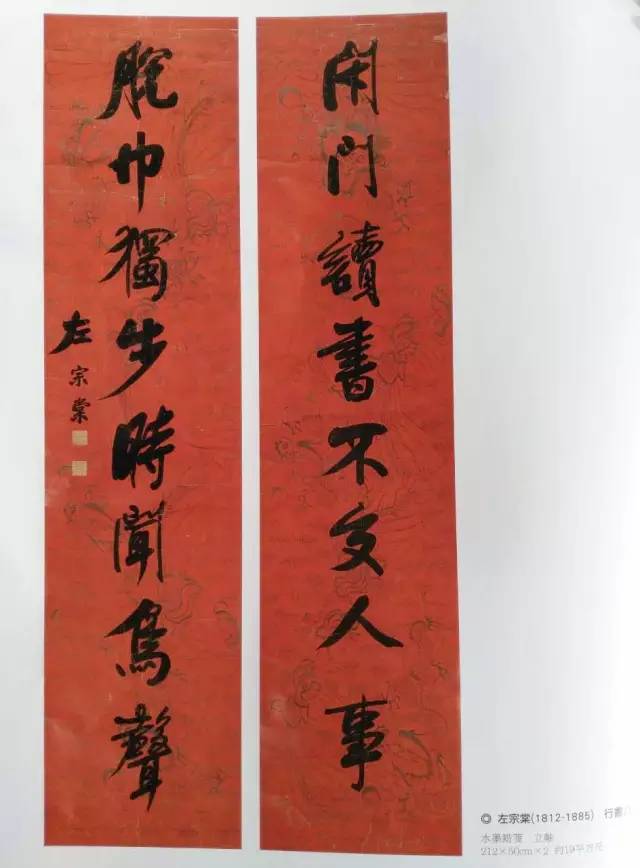 閉門讀書不交人事
脫巾獨步時聞鳥聲
左宗棠
◎ 左宗棠(1812-1885) 行書
水墨 立軸
212×50cm×2 約19平方尺